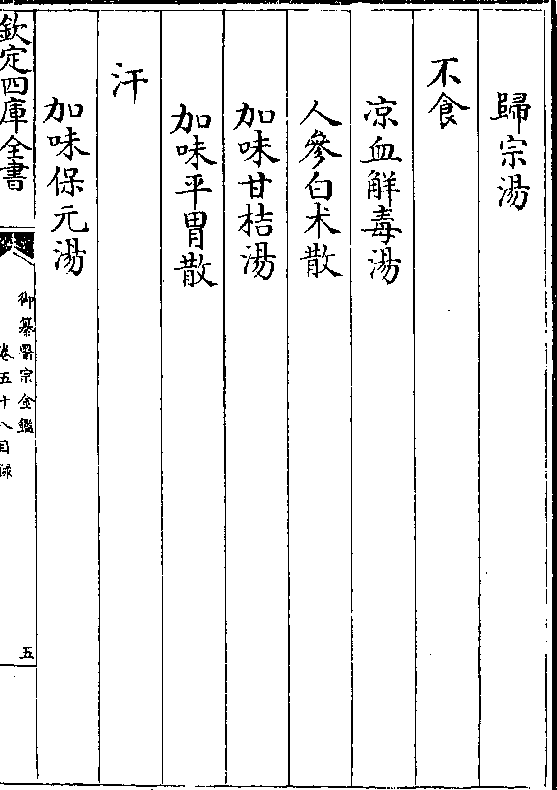 歸宗湯
不食
凉血解毒湯
人參白朮散
加味甘桔湯
加味平胃散
汗
加味保元湯
欽定四庫全書
御纂醫宗金鑑
卷五十八目録
五